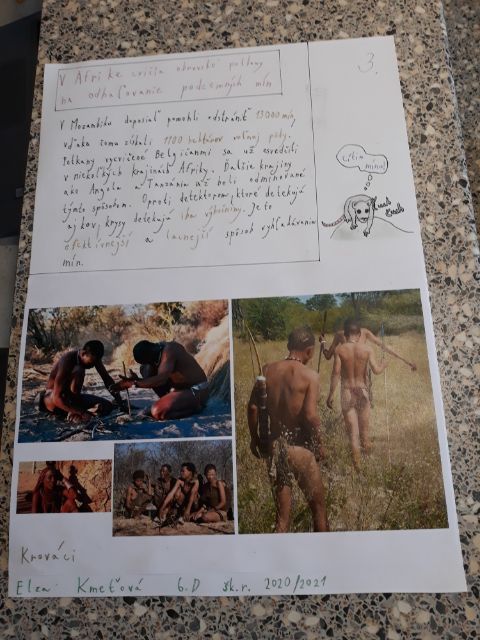 V Afrike cvičia obrovské potkany
na odhaľovanie podzemných mín
3.
V Mozambiku doposiaľ pomohli odstrániť 13 000 mín,
vďaka tomu získali 1100 hektárov voľnej pôdy.
Potkany vycvičené Belgičanmi sa už osvedčili
v niekoľkých krajinách Afriky. Ďalšie krajiny
ako Angola a Tanzánia už boli odmínované
týmto spôsobom. Oproti detektorom, ktoré detekujú
aj kov, krysy detekujú iba výbušniny. Je to
efektívnejší a lacnejší spôsob vyhľadávania
mín.
Cítim
mínu!
Krováci
Elza Kmeťová 6.D šk.r. 2020/2021